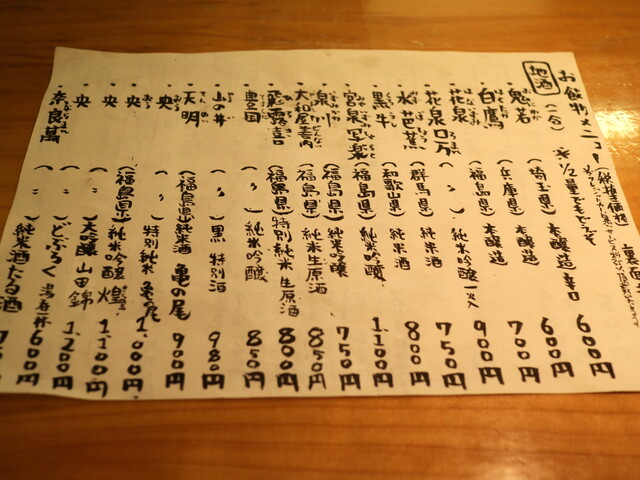 お飲物メニュー
地酒 (二合) ※1/2量でもどうぞ
鬼若 (埼玉県) 本醸造 辛口 600円
白鷹 (兵庫県) 本醸造 600円
花泉 (福島県) 本醸造 700円
花泉 口万 (〃) 純米吟醸一火 900円
水芭蕉 (群馬県) 純米酒 750円
黒牛 (和歌山県) 純米酒 800円
宮泉 写楽 (福島県) 純米吟醸 1,100円
泉川 (福島県) 純米吟醸 750円
大和屋善内 (福島県) 純米生原酒 850円
飛露喜 (福島県) 特別純米生原酒 800円
豊国 (〃) 純米吟醸 850円
山の井 (〃) 黒 特別酒 980円
天明 (福島県) 純米酒 亀の尾 900円
央 (〃) 特別純米 亀の尾 1,000円
央 (福島県) 純米吟醸 煌 1,100円
央 (〃) 大吟醸 山田錦 1,200円
(〃) どぶろく 湯呑一杯 600円
奈良萬 (〃) 純米酒たる酒